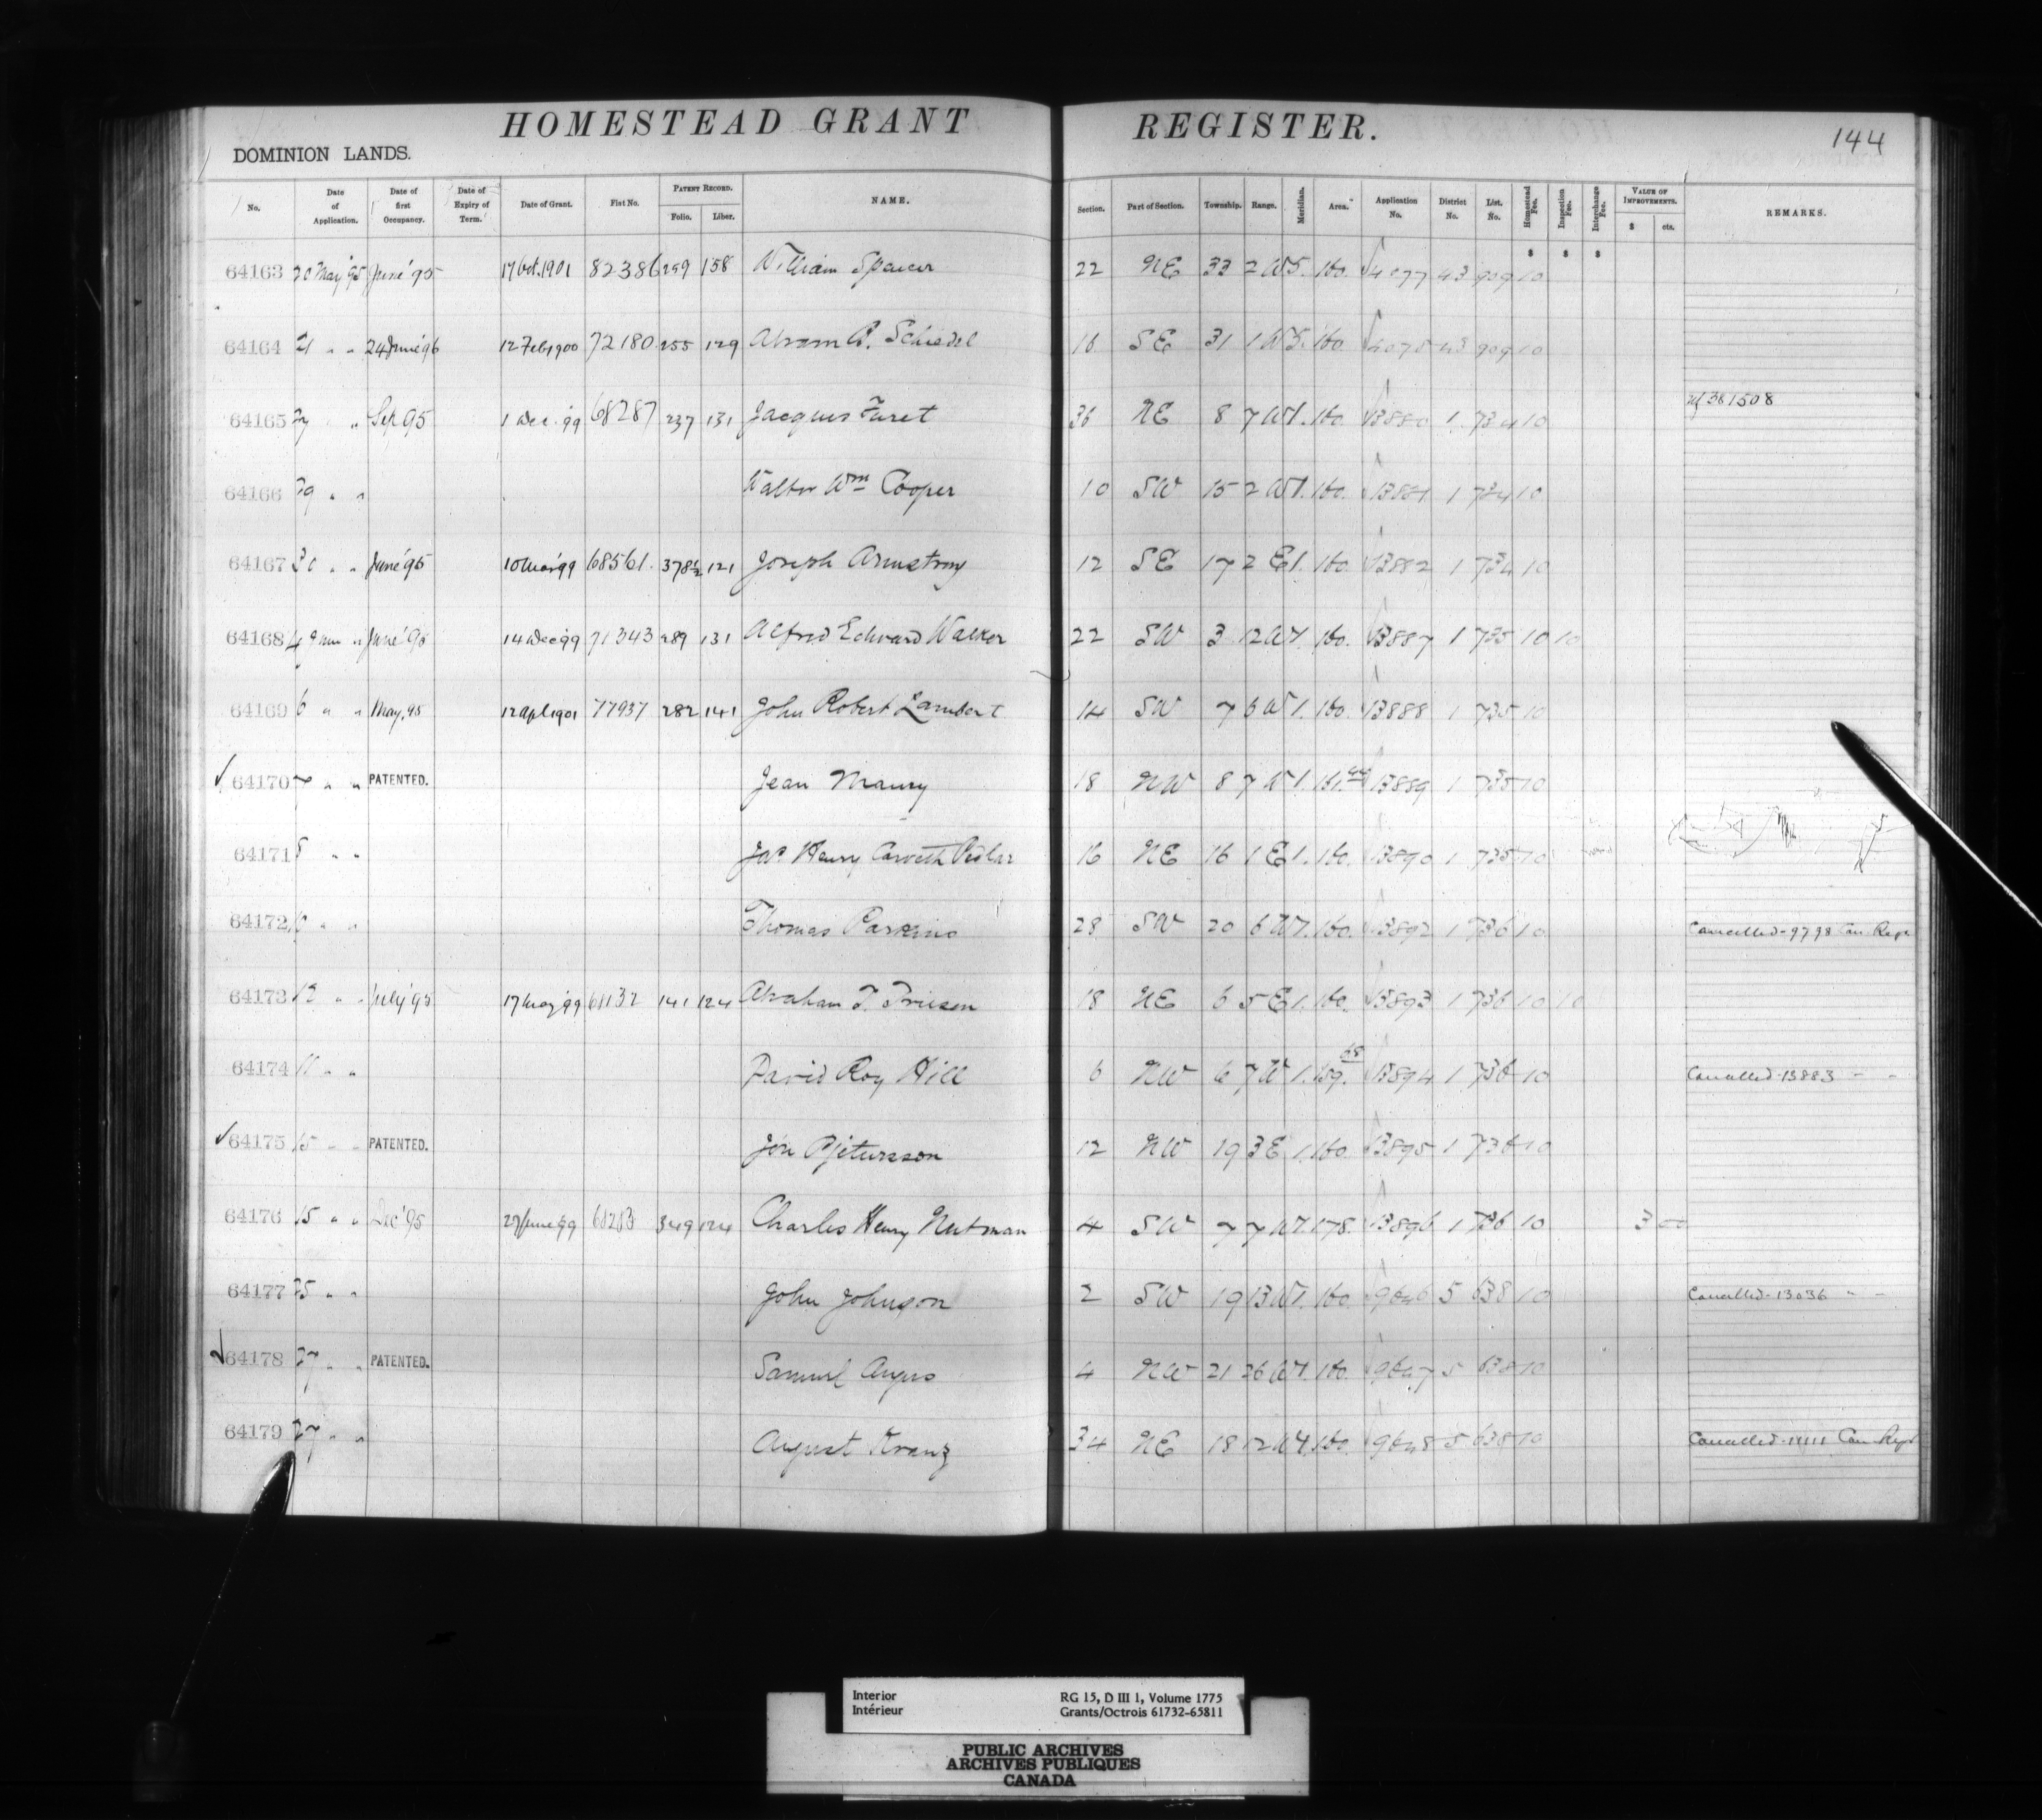 HOMESTEAD GRANT REGISTER.
144
DOMINION LANDS.
No. Date of Application. Date of first Occupancy. Date of Expiry of Term. Date of Grant. Fiat No. PATENT RECORD. Folio. Liber. NAME. Section. Part of Section. Township. Range. Meridian. Area. Application No. District No. List. No. Homestead Fee. Inspection Fee. Interchange Fee. VALUE OF IMPROVEMENTS. $ cts. REMARKS.
$ $ $
64163 20 May '95 June '95 17 Oct. 1901 82386 259 158 William Spencer 22 NE 33 2 W5. 160. 4077 43 909 10
64164 21 " " 24 June '96 12 Feb 1900 72180 255 129 Abram B. Schiedel 16 SE 31 1 W5. 160 4078 43 909 10
64165 " Sep 95 1 Dec. 99 68287 237 131 Jacques Furet 36 NE 8 7 W1. 160. 13880 1 734 10 381508
64166 29 " " Walter Wm Cooper 10 SW 15 2 W1. 160. 13881 1 734 10
64167 30 " " June '95 10 99 68561. 378½ 121 Joseph Armstrong 12 SE 17 2 E1. 160 13882 1 734 10
64168 4 June " June '95 14 Dec 99 71343 289 131 Alfred Edward Walker 22 SW 3 12 W1. 160. 13887 1 735 10 10
64169 6 " " May, 95 12 Apl 1901 77937 282 141 John Robert Lambert 14 SW 7 6 W1. 160. 13888 1 735 10
64170 7 " " PATENTED. Jean Maury 18 NW 8 7 W1. 161.44 13889 1 735 10
64171 8 " " Jas Henry Carveth Pedlar 16 NE 16 1 E1. 160. 13890 1 735 10
64172 10 " " Thomas Parkins 28 SW 20 6 W1. 160. 13892 1 736 10 Cancelled - 9798 Can Regr
64173 12 " " July '95 17 May '99 141 124 Abraham T. Friesen 18 NE 6 5 E1. 160. 13893 1 736 10 10
64174 11 " " David Roy Hill 6 NW 6 7 W1. 159.68 13894 1 736 10 Cancelled - 13883 " "
64175 15 " " PATENTED. Jón Pjetursson 12 NW 19 3 E1. 160. 13895 1 736 10
64176 15 " " Dec '95 27 June 99 349 124 Charles Henry Nutman 4 SW 7 7 W1. 178. 13896 1 736 10 3 00
64177 25 " " John Johnson 2 SW 19 13 W1. 160. 9646 5 638 10 Cancelled - 13036 " "
64178 27 " " PATENTED. Samuel Angus 4 NW 21 26 W1. 160. 9647 5 638 10
64179 27 " " August Kranz 34 NE 18 12 W1. 160. 9648 5 638 10 Cancelled - 11111 Can Regr
Interior RG 15, D III 1, Volume 1775
Intérieur Grants/Octrois 61732-65811
PUBLIC ARCHIVES
ARCHIVES PUBLIQUES
CANADA